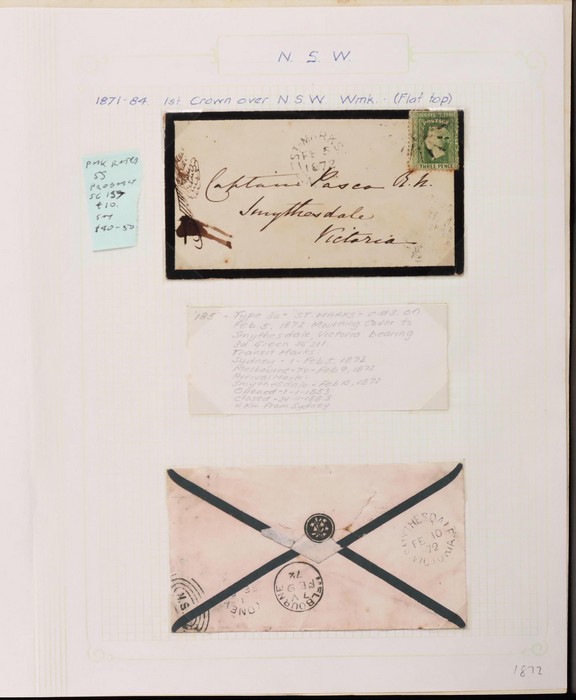 N.S.W.
1871-84 1st Crown over N.S.W Wmk. - (Flat top)
PMK RATED
55
PROBABLY
SG 157
$10
$40-50
ST. MARKS
FE 5
1872
POSTAGE
THREE PENCE
Captain Pasco R.N.
Smythesdale
Victoria
185 - Type 3a ST. MARKS - C.D.S. on
Feb 5, 1872 Mourning Cover to
Smythesdale, Victoria bearing
3d Green SG 211.
Transit Marks:
Sydney - Feb 5, 1872
Melbourne - Feb 9, 1872
Arrival Mark:
Smythesdale - Feb 10, 1872
Opened 1-1-1853
Closed
4 Km From Sydney
SMYTHESDALE
FE 10
72
VICTORIA
MELBOURNE
7 V
FE 9
72
N.S.
1872